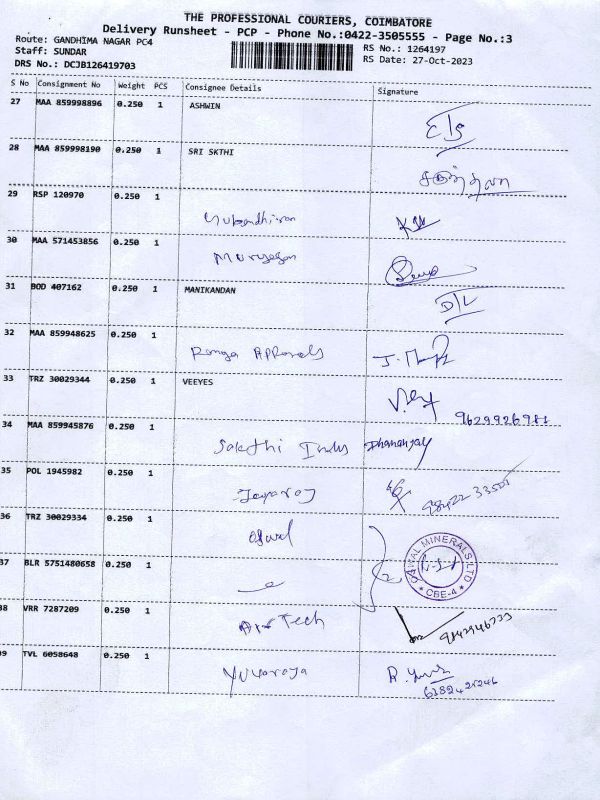 THE PROFESSIONAL COURIERS, COIMBATORE
Delivery Runsheet - PCP - Phone No.:0422-3505555 - Page No.:3
Route: GANDHIMA NAGAR PC4 RS No.: 1264197
Staff: SUNDAR RS Date: 27-Oct-2023
DRS No.: DCJB126419703
S No Consignment No Weight PCS Consignee Details Signature
27 MAA 859998896 0.250 1 ASHWIN
28 MAA 859998190 0.250 1 SRI SKTHI சகுந்தலா
29 RSP 120970 0.250 1
30 MAA 571453856 0.250 1 Murugesan
31 BOD 407162 0.250 1 MANIKANDAN D/L
32 MAA 859948625 0.250 1 Ranga Apparels
33 TRZ 30029344 0.250 1 VEEYES
34 MAA 859945876 0.250 1 Sakthi Indus Dhananjay
35 POL 1945982 0.250 1 Jayaraj
36 TRZ 30029334 0.250 1
OSWAL MINERALS LTD
* CBE-4 *
37 BLR 5751480658 0.250 1
38 VRR 7287209 0.250 1 Air Tech
39 TVL 6058648 0.250 1 Yuvaraja